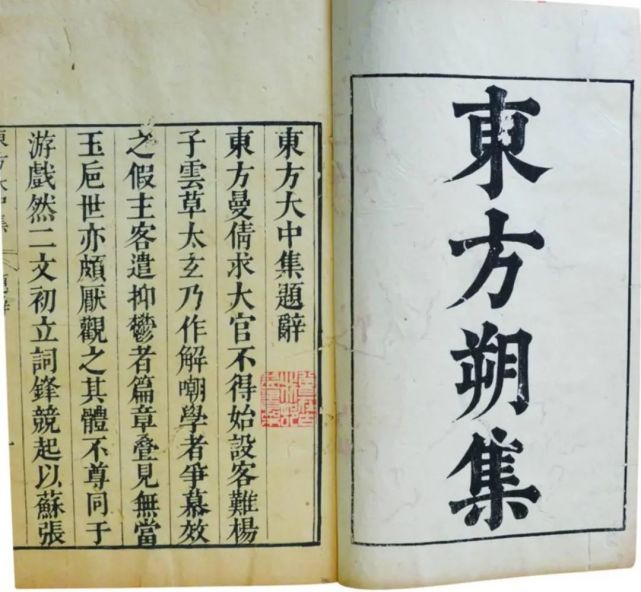 東方朔集
東方大中集題辭
東方曼倩求大官不得始設客難楊
子雲草太玄乃作解嘲學者爭慕效
之假主客遣抑鬱者篇章疊見無當
玉巵世亦頗厭觀之其體不尊同于
游戲然二文初立詞鋒競起以蘇張
東方大中集
題辭
一